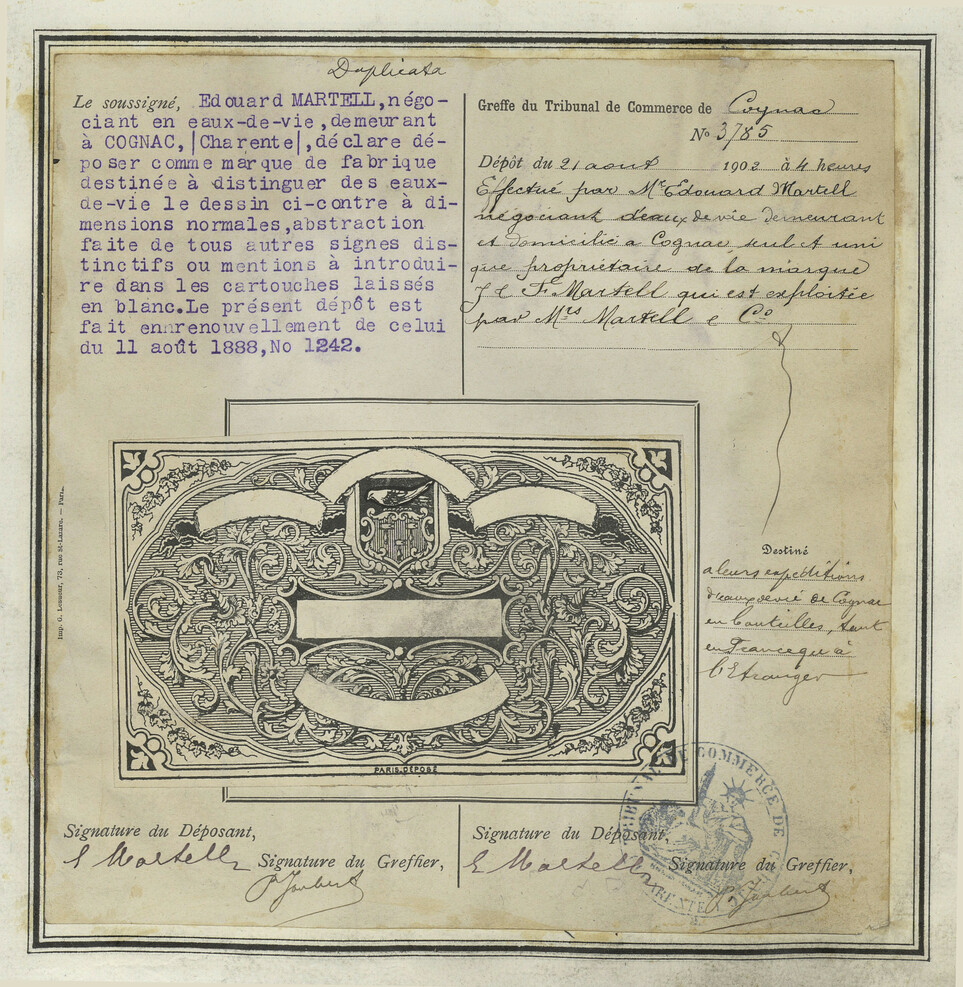 Duplicata
Le soussigné, Edouard MARTELL,négo-
ciant en eaux-de-vie,demeurant
à COGNAC,|Charente|,déclare dé-
poser comme marque de fabrique
destinée à distinguer des eaux-
de-vie le dessin ci-contre à di-
mensions normales,abstraction
faite de tous autres signes dis-
tinctifs ou mentions à introdui-
re dans les cartouches laissés
en blanc.Le présent dépôt est
fait ennrenouvellement de celui
du 11 août 1888,No 1242.
Greffe du Tribunal de Commerce de Cognac
No 3785
Dépôt du 21 aout 1902 à 4 heures
Effectué par Mr Edouard Martell
négociant d'eaux de vie demeurant
et domicilié a Cognac, seul et uni
que propriétaire de la marque
J & F Martell qui est exploitée
par Mrs Martell & Co
Destiné
a leurs expéditions
d'eaux de vie de Cognac
en bouteilles, tant
en France qu'a
l'Etranger
Imp. G. Lesueur, 73, rue St-Lazare. — Paris.
PARIS.DÉPOSÉ
Signature du Déposant,
E Martell
Signature du Greffier,
Joubert
Signature du Déposant,
E Martell
Signature du Greffier,
Joubert
TRIBUNAL DE COMMERCE DE
CHARENTE